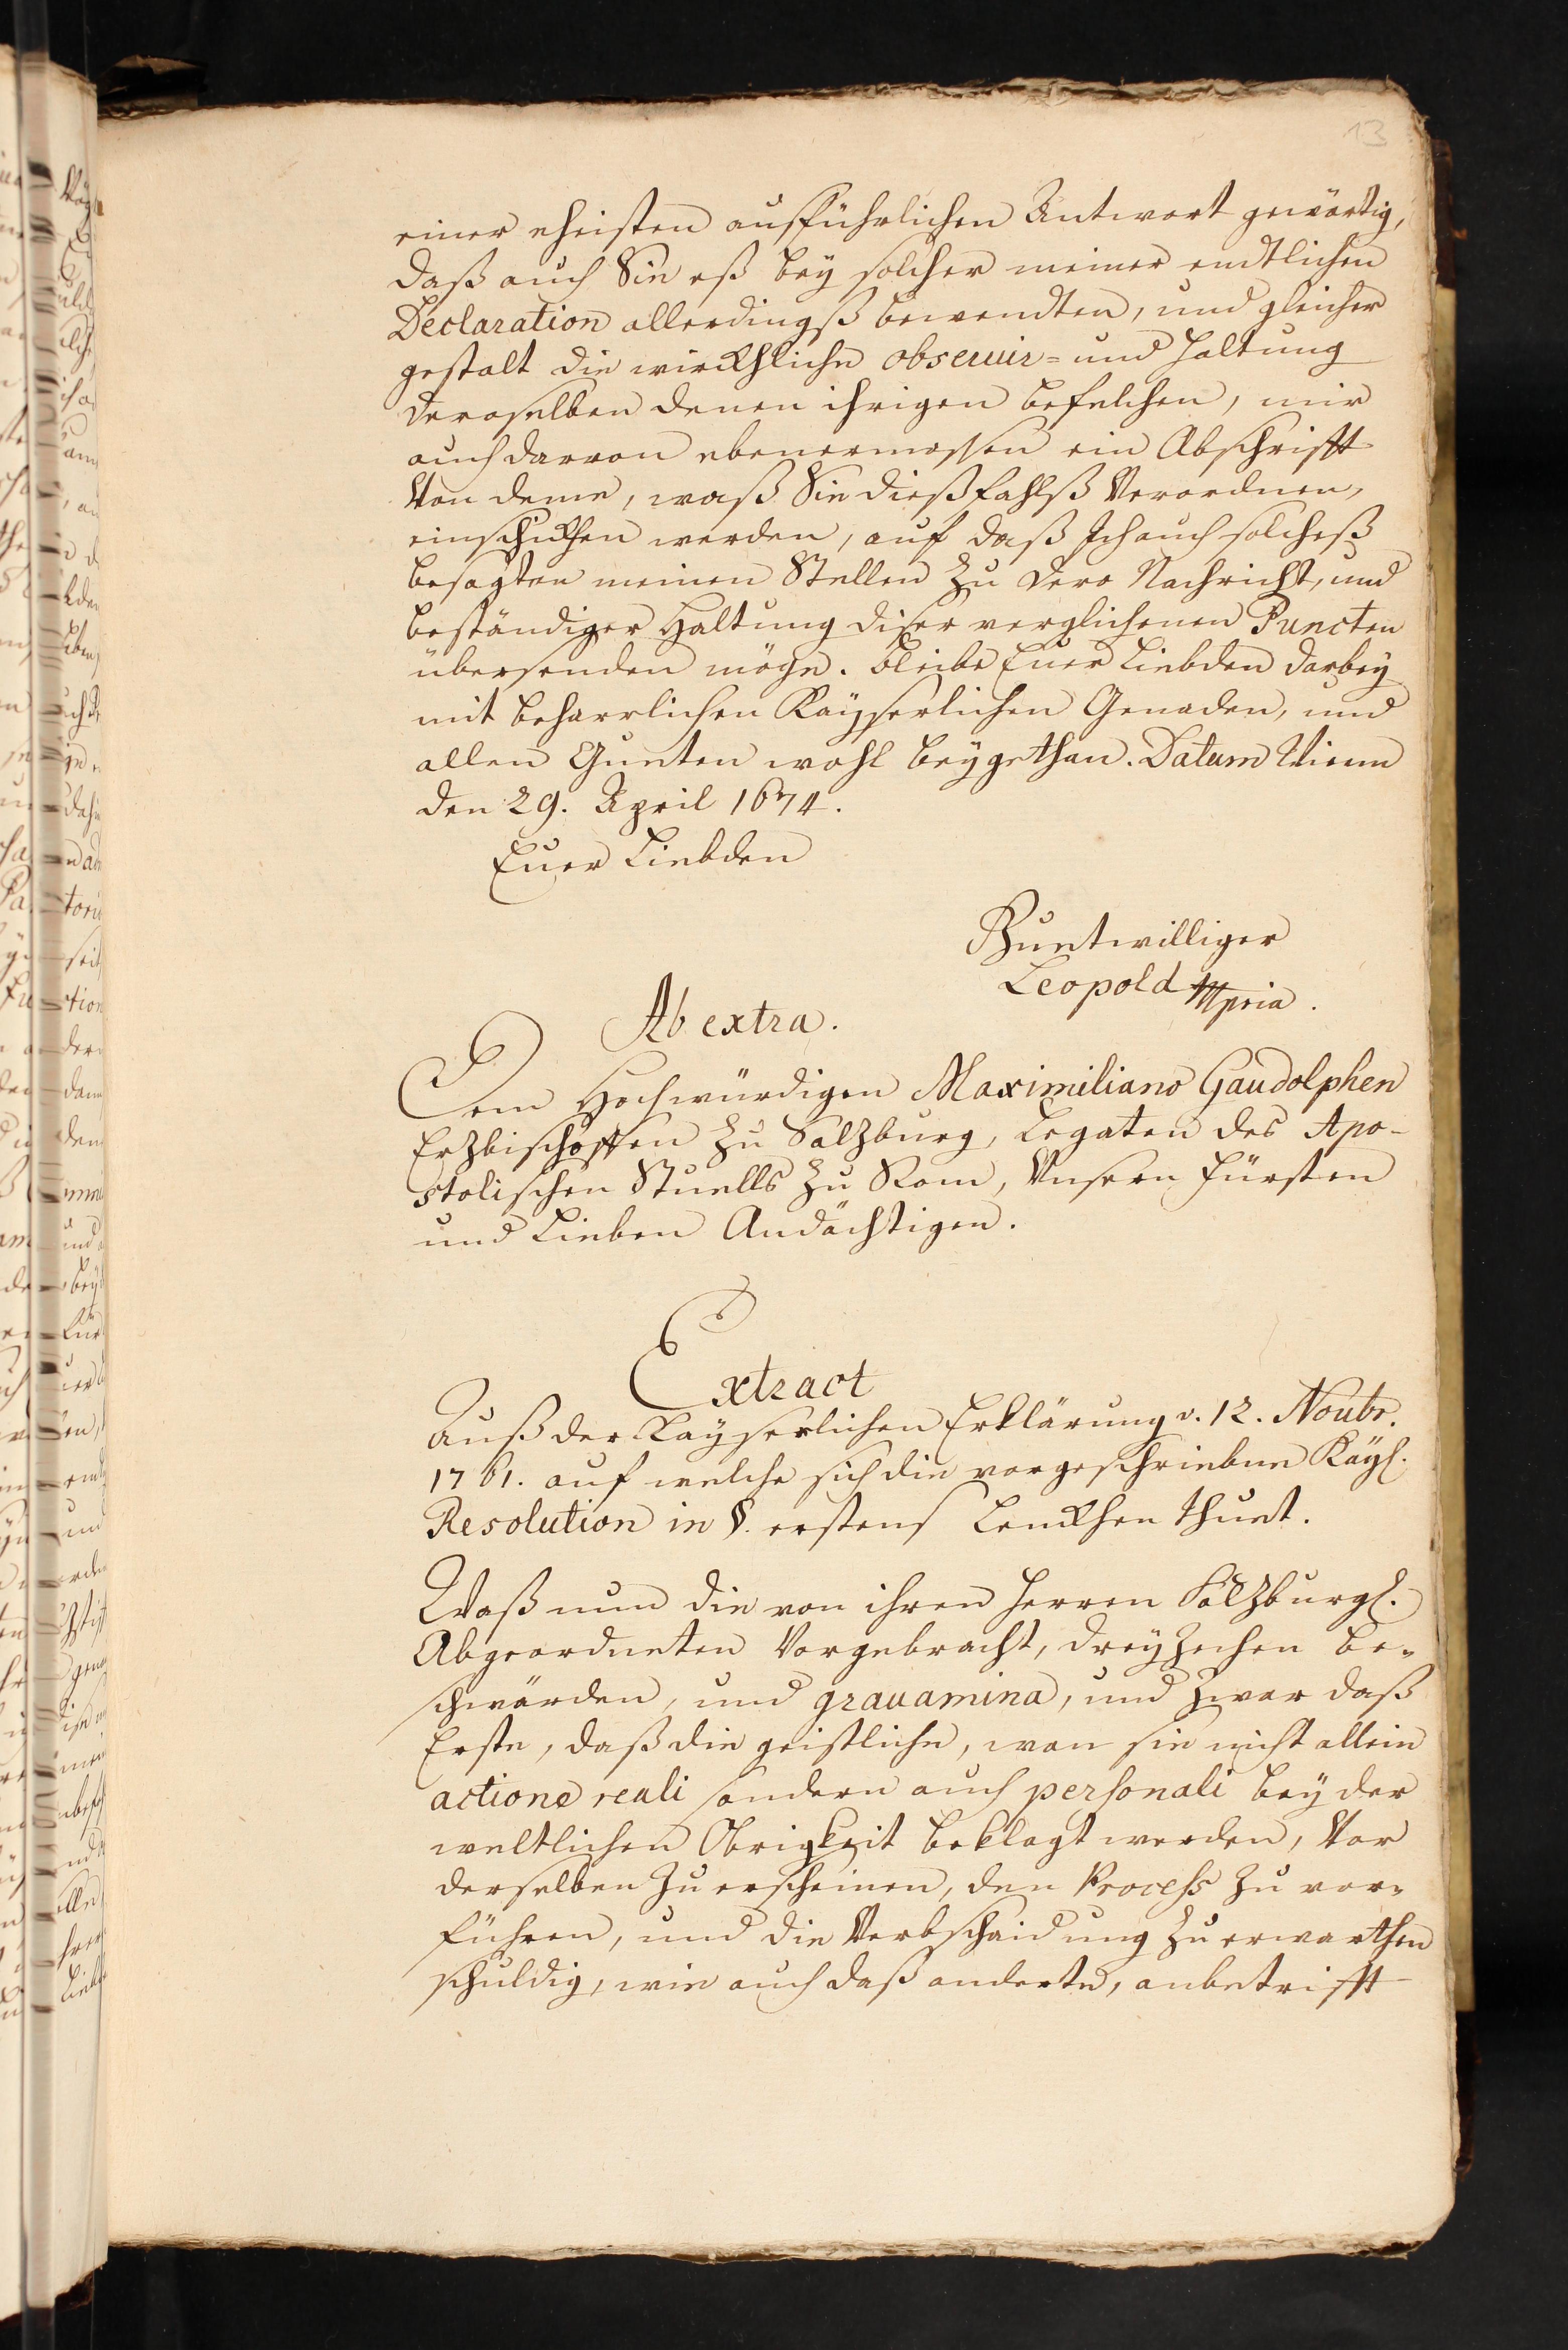 13
einer eheisten ausführlichen Antwort gewärtig,
daß auch Sie eß bey solcher meiner endtlichen
Declaration allerdingß bewendten, und gleicher
gestalt die würckhliche obseruir= und Haltung
deroselben denen ihrigen befelchen, mir
auch darvon ebenermassen ein Abschrifft
Von deme, waß Sie dießfahlß Verordnen,
einschickhen werden, auf daß Ich auch solcheß
besagten meinen Stellen zu dero Nachricht, und
beständiger Haltung diser verglichenen Puncten
übersenden möge. bleibe Euer Liebden darbey
mit beharrlichen Kayserlichen Genaden, und
allen Gueten wohl beygethan. Datum Wienn
den 29. April 1674.
Euer Liebden
Guetwilliger
Leopold Mpria.
Ab extra.
Dem Hochwürdigen Maximiliano Gaudolphen
Erzbischoffen zu Salzburg, Legaten des Apo-
stolischen Stuells zu Rom, Unsern Fürsten
und Lieben Andächtigen.
Extract
Auß der Kayserlichen Erklärung v. 12. Noubr.
1761. auf welche sich die vorgeschriebene Kayl.
Resolution in §. erstens lenckhen thuet.
Waß nun die von ihren Herren Salzburgl.
Abgeordneten Vorgebracht, dreyzehen be-
schwärden, und grauamina, und zwar daß
Erste, daß die geistliche, wan sie nicht allein
actione reali sondern auch personali bey der
weltlichen Obrigkeit beklagt werden, Vor
derselben zu erscheinen, den Process zu vor-
führen, und die Verbschaidung zu erwarthen
schuldig, wie auch daß anderte, anbetrifft